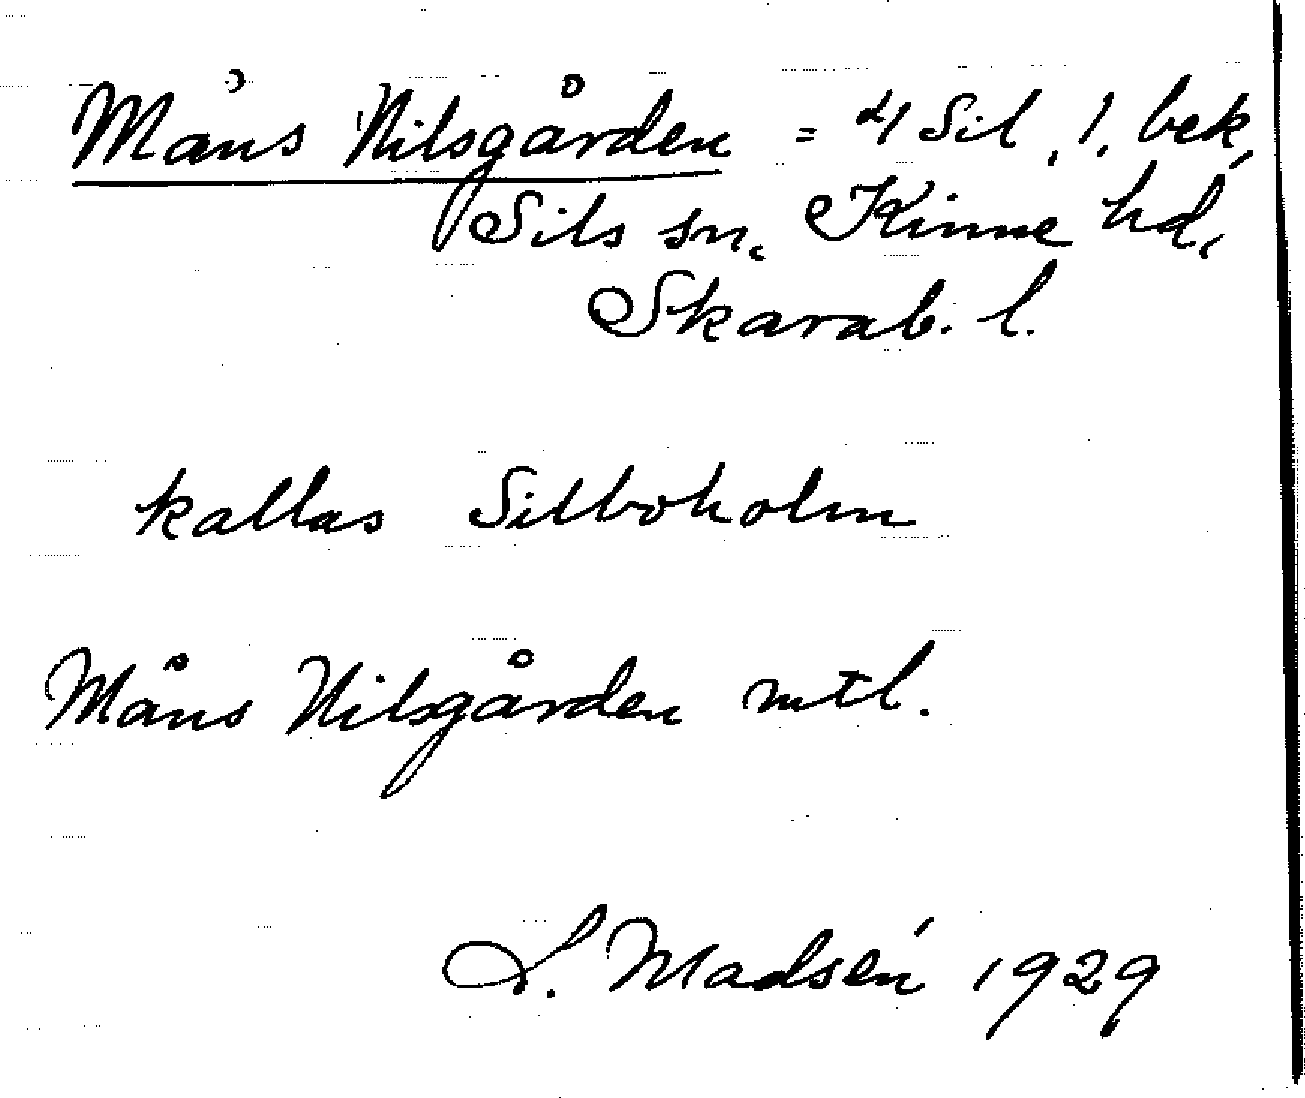 Måns Nilsgården = 4 Sil, 1. bek,
Sils sn. Kinne hd,
Skarab. l.
kallas Silboholm
Måns Nilsgården mtl.
L. Madsén 1929